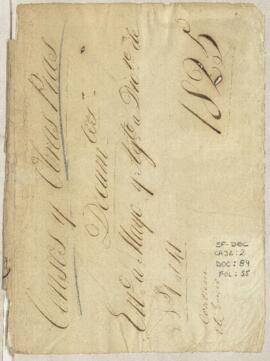 Censos y Obras Pias
Docum.tos
En.o a Mayo y Agto a Dice de
1825
SF-DOC
CAJA: 2
DOC: 89
FOL: 55